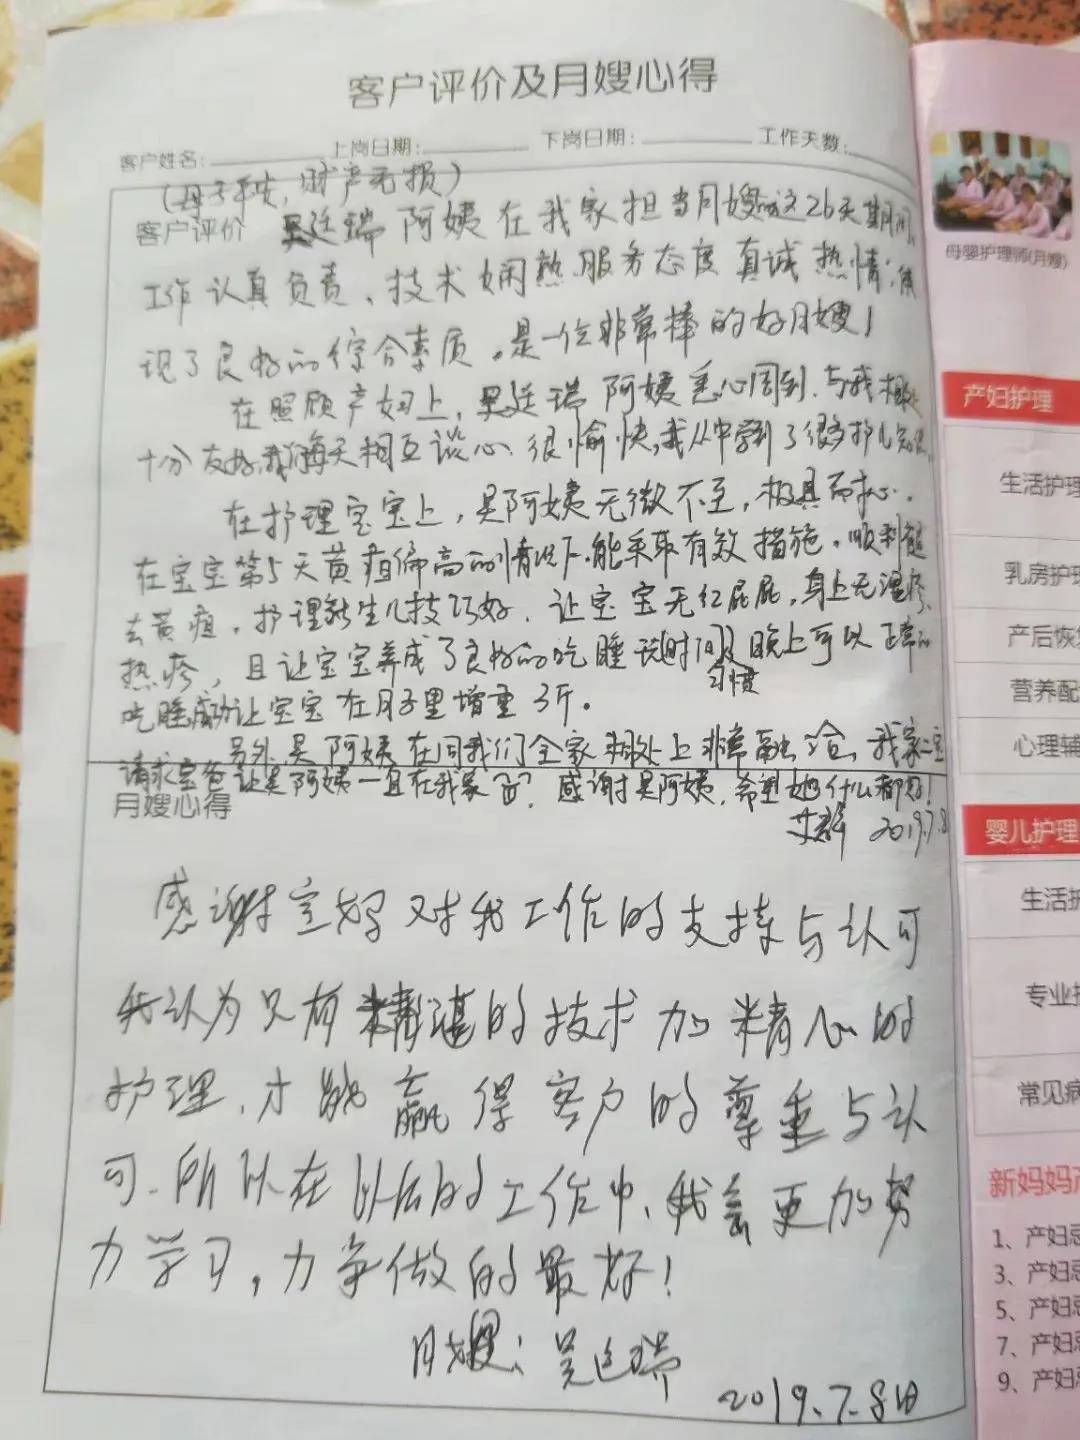 客户评价及月嫂心得
客户姓名: 上岗日期: 下岗日期: 工作天数:
(母子平安,财产无损)
客户评价 吴廷瑞阿姨在我家担当月嫂的这26天期间,
工作认真负责、技术娴熟.服务态度真诚热情,体
现了良好的综合素质。是一位非常棒的好月嫂!
在照顾产妇上,吴廷瑞阿姨悉心周到.与我相处
十分友好,我们每天相互谈心、很愉快,我从中学到了很多护儿知识.
在护理宝宝上,吴阿姨无微不至,极具耐心.
在宝宝第5天黄疸偏高的情况下.能采取有效措施。顺利褪
去黄疸。护理新生儿技巧好.让宝宝无红屁屁,身上无湿疹、
热疹,且让宝宝养成了良好的吃睡玩时间及习惯 晚上可以正常的
吃睡.成功让宝宝在月子里增重3斤。
另外,吴阿姨在同我们全家相处上非常融洽,我家二宝
请求宝爸让吴阿姨一直在我家 感谢吴阿姨,希望她什么都好!
月嫂心得
2019.7.8
感谢宝妈对我工作的支持与认可
我认为只有精湛的技术加精心的
护理,才能赢得客户的尊重与认
可.所以在以后的工作中,我会更加努
力学习,力争做的最好!
月嫂:吴廷瑞
2019.7.8日
母婴护理师(月嫂)
产妇护理
生活护理
乳房护理
产后恢复
营养配
心理辅
婴儿护理
生活护
专业护
常见病
新妈妈产
1、产妇忌
3、产妇忌
5、产妇忌
7、产妇忌
9、产妇忌